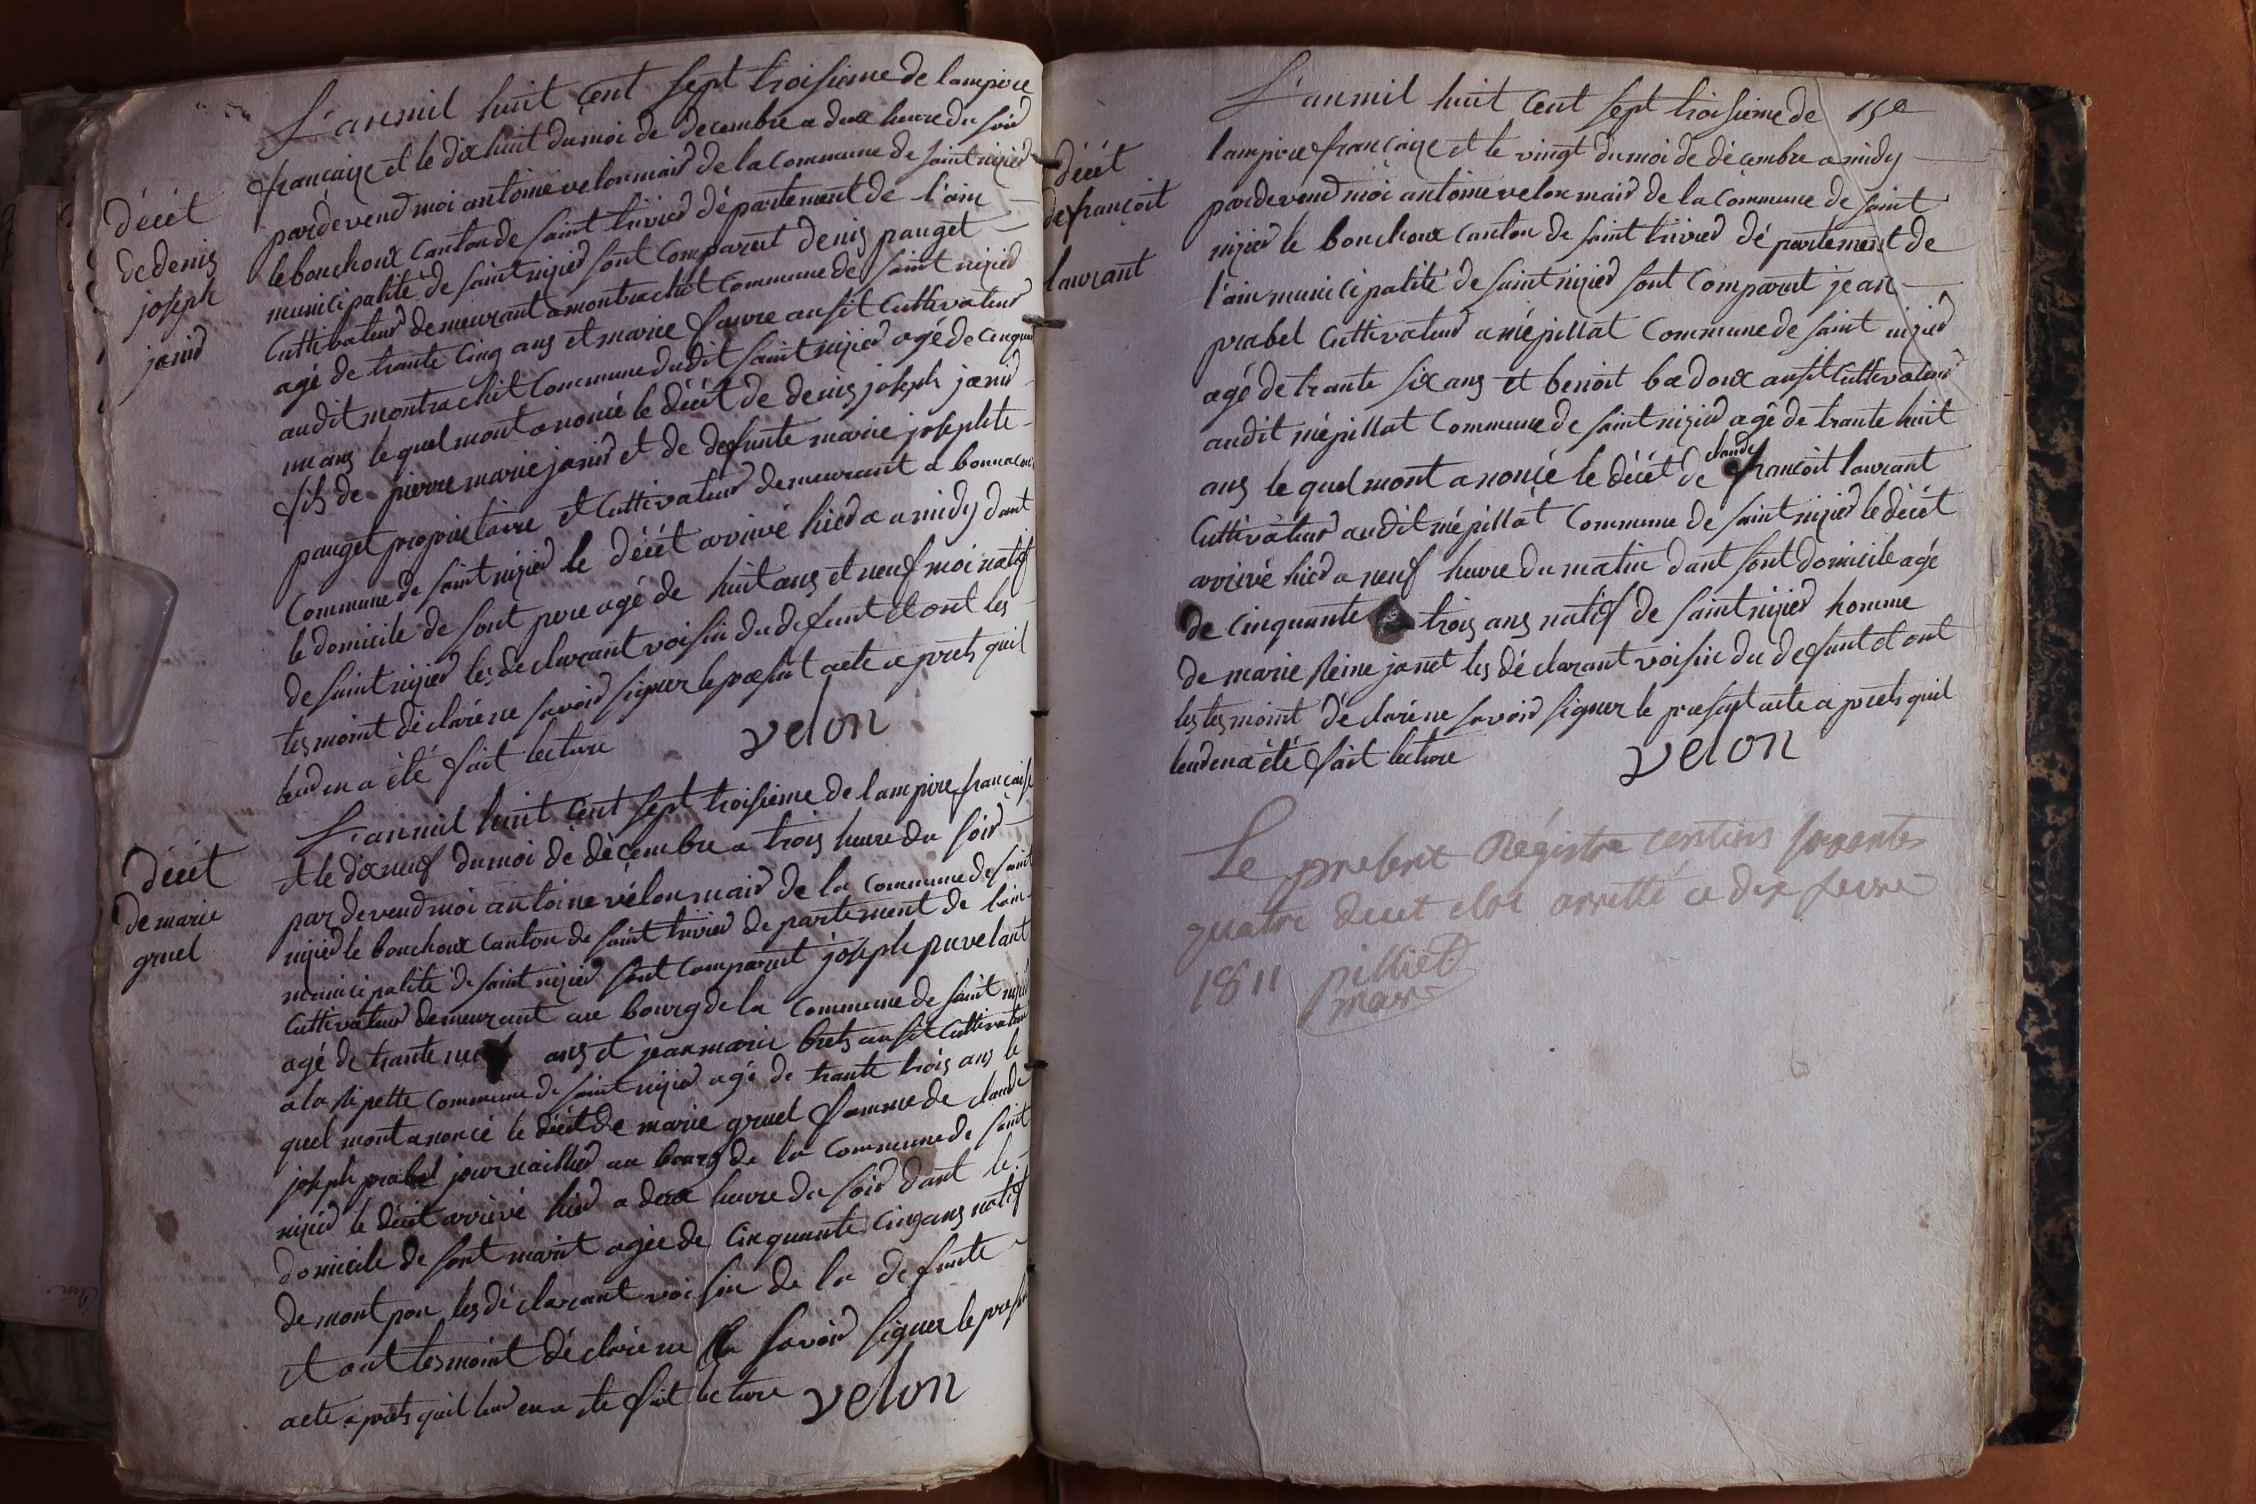 L'an mil huit cent sept troisieme de lampire
francaize et le dix huit du moi de decembre a deux heure du soir
pardevend moi antoine velon mair de la commune de saint nizier
le bouchoux canton de saint trivier département de l'ain
municipalité de saint nizier sont comparut denis pauget
cultivateur demeurant a montrachit commune de saint nizier
agé de trante cinq ans et marie favre ausit cultivateur
audit montrachit commune dudit saint nizier agé de cinquante
un ans le quel mont anoncé le décét de denis joseph janir
fils de pierre marie janir et de defunte marie josephte
pauget proprietaire et cultivateur demeurant a bonnacour
commune de saint nizier le décét arrivé hier a amidy dant
le domicile de sont pere agé de huit ans et neuf moi natif
de saint nizier les declarant voisin du defunt et ont les
tesmoint déclaré ne savoir signer le present acte a prets quil
leur en a été fait lecture velon
décét
de denis
joseph
janir
L'an mil huit cent sept troisieme de lampire francaise
et le dix neuf du moi de décembre a trois heure du soir
par devend moi antoine vélon mair de la commune de saint
nizier le bouchoux canton de saint trivier departement de lain
municipalité de saint nizier sont comparut joseph puvelant
cultivateur demeurant au bourg de la commune de saint nizier
agé de trante neuf ans et jean marie brets ausit cultivateur
a la ripette commune de saint nizier agé de trante trois ans le
quel mont anoncé le décét de marie gruel famme de claude
joseph prabel journaillier au bourg de la commune de saint
nizier le décét arrivé hier a deux heure du soir dant le
domicile de sont marit agée de cinquante cinq ans natif
de mont pon les déclarant voisin de la defunte
et ont tesmoint déclaré ne savoir signer le present
acte a prets quil leur en a ete fait lecture velon
décét
de marie
gruel
L'an mil huit cent sept troisieme de 15e
lampire francaize et le vingt du moi de décembre a midy
pardevend moi antoine velon mair de la commune de saint
nizier le bouchoux canton de saint trivier département de
l'ain municipalité de saint nizier sont comparut jean
prabel cultivateur a mépillat commune de saint nizier
agé de trante six ans et benoit badoux ausit cultivateur
audit mépillat commune de saint nizier agé de trante huit
ans le quel mont anoncé le décét de claude françoit laurant
cultivateur audit mépillat commune de saint nizier le décét
arrivé hier a neuf heure du matin dant sont domicile agé
de cinquante trois ans natif de saint nizier homme
de marie Reine janet les déclarant voisin du defunt et ont
les tesmoint déclaré ne savoir signer le present acte a prets quil
leur en a été fait lecture velon
décét
de françoit
laurant
Le present Régistre contins soixante
quatre decet clos arretté ce dix fevre
1811 pilliet
mair